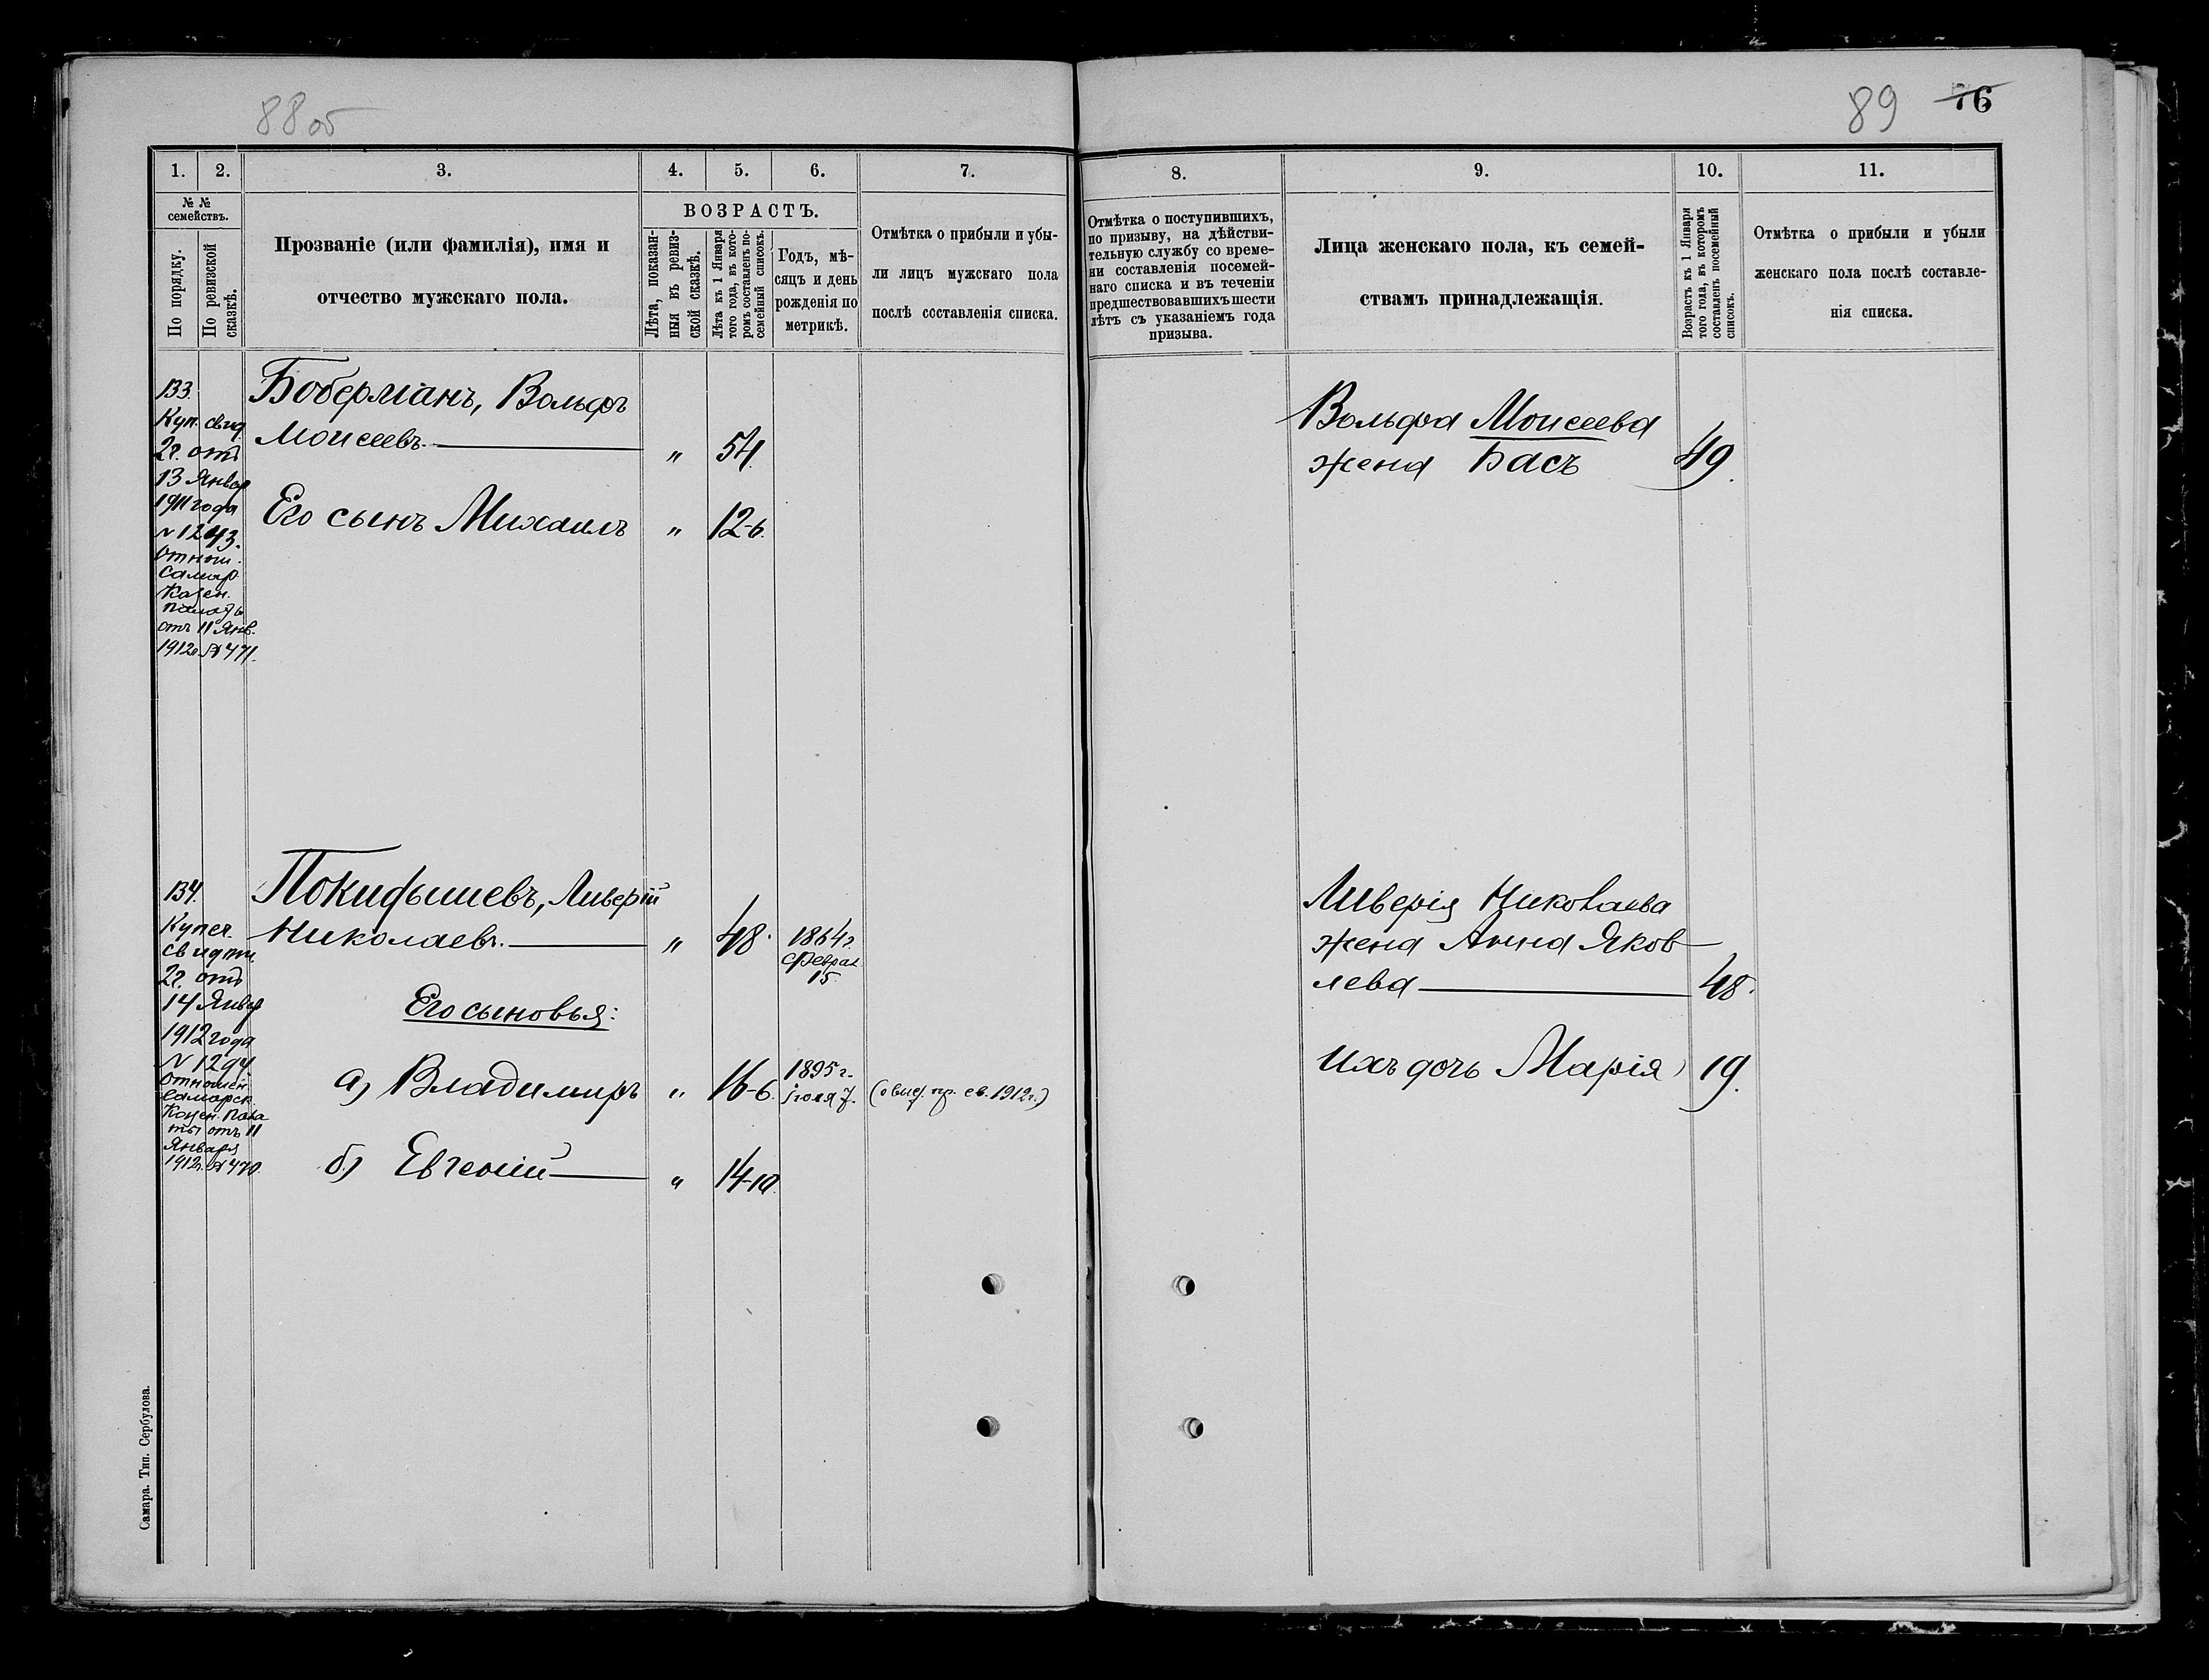 88 об
89 76
1. 2. 3. 4. 5. 6. 7.
№ №
семействъ.
По порядку.
По ревизской
сказкѣ.
Прозваніе (или фамилія), имя и
отчество мужскаго пола.
ВОЗРАСТЪ.
Лѣта, показан-
ныя въ ревиз-
ской сказкѣ.
Лѣта къ 1 Января
того года, въ кото-
ромъ составленъ по-
семейный списокъ.
Годъ, мѣ-
сяцъ и день
рожденія по
метрикѣ.
Отмѣтка о прибыли и убы-
ли лицъ мужскаго пола
послѣ составленія списка.
8. 9. 10. 11.
Отмѣтка о поступившихъ,
по призыву, на дѣйстви-
тельную службу со време-
ни составленія посемей-
наго списка и въ теченіи
предшествовавшихъ шести
лѣтъ съ указаніемъ года
призыва.
Лица женскаго пола, къ семей-
ствамъ принадлежащія.
Возрастъ къ 1 Января
того года, въ которомъ
составленъ посемейный
списокъ.
Отмѣтка о прибыли и убыли
женскаго пола послѣ составле-
нія списка.
133.
Куп. свид.
2г. отъ
13 Январ
1911 года
№ 1243.
Отнош.
Самар.
Казен.
Палаты
отъ 11 Янв.
1912г. № 471.
Боберманъ, Вольфъ
Моисеевъ. " 54.
Его сынъ Михаилъ " 12-6.
Вольфа Моисеева
жена Бася 49.
134.
Купеч.
свидѣт.
2г. отъ
14 Январ
1912 года
№ 1294.
Отношен.
Самарск.
Казен. Пала
ты отъ 11
Января
1912г. № 470.
Покидышевъ, Ливерій
Николаевъ. " 48. 1864г.
Феврал.
15.
Его сыновья:
а) Владимиръ " 16-6. 1895 г.
іюля 7. (о выд. пр. св. 1912г.)
б) Евгеній " 14-10.
Ливерія Николаева
жена Анна Яков
лева 48.
Ихъ дочь Марія 19.
Самара. Тип. Сербулова.